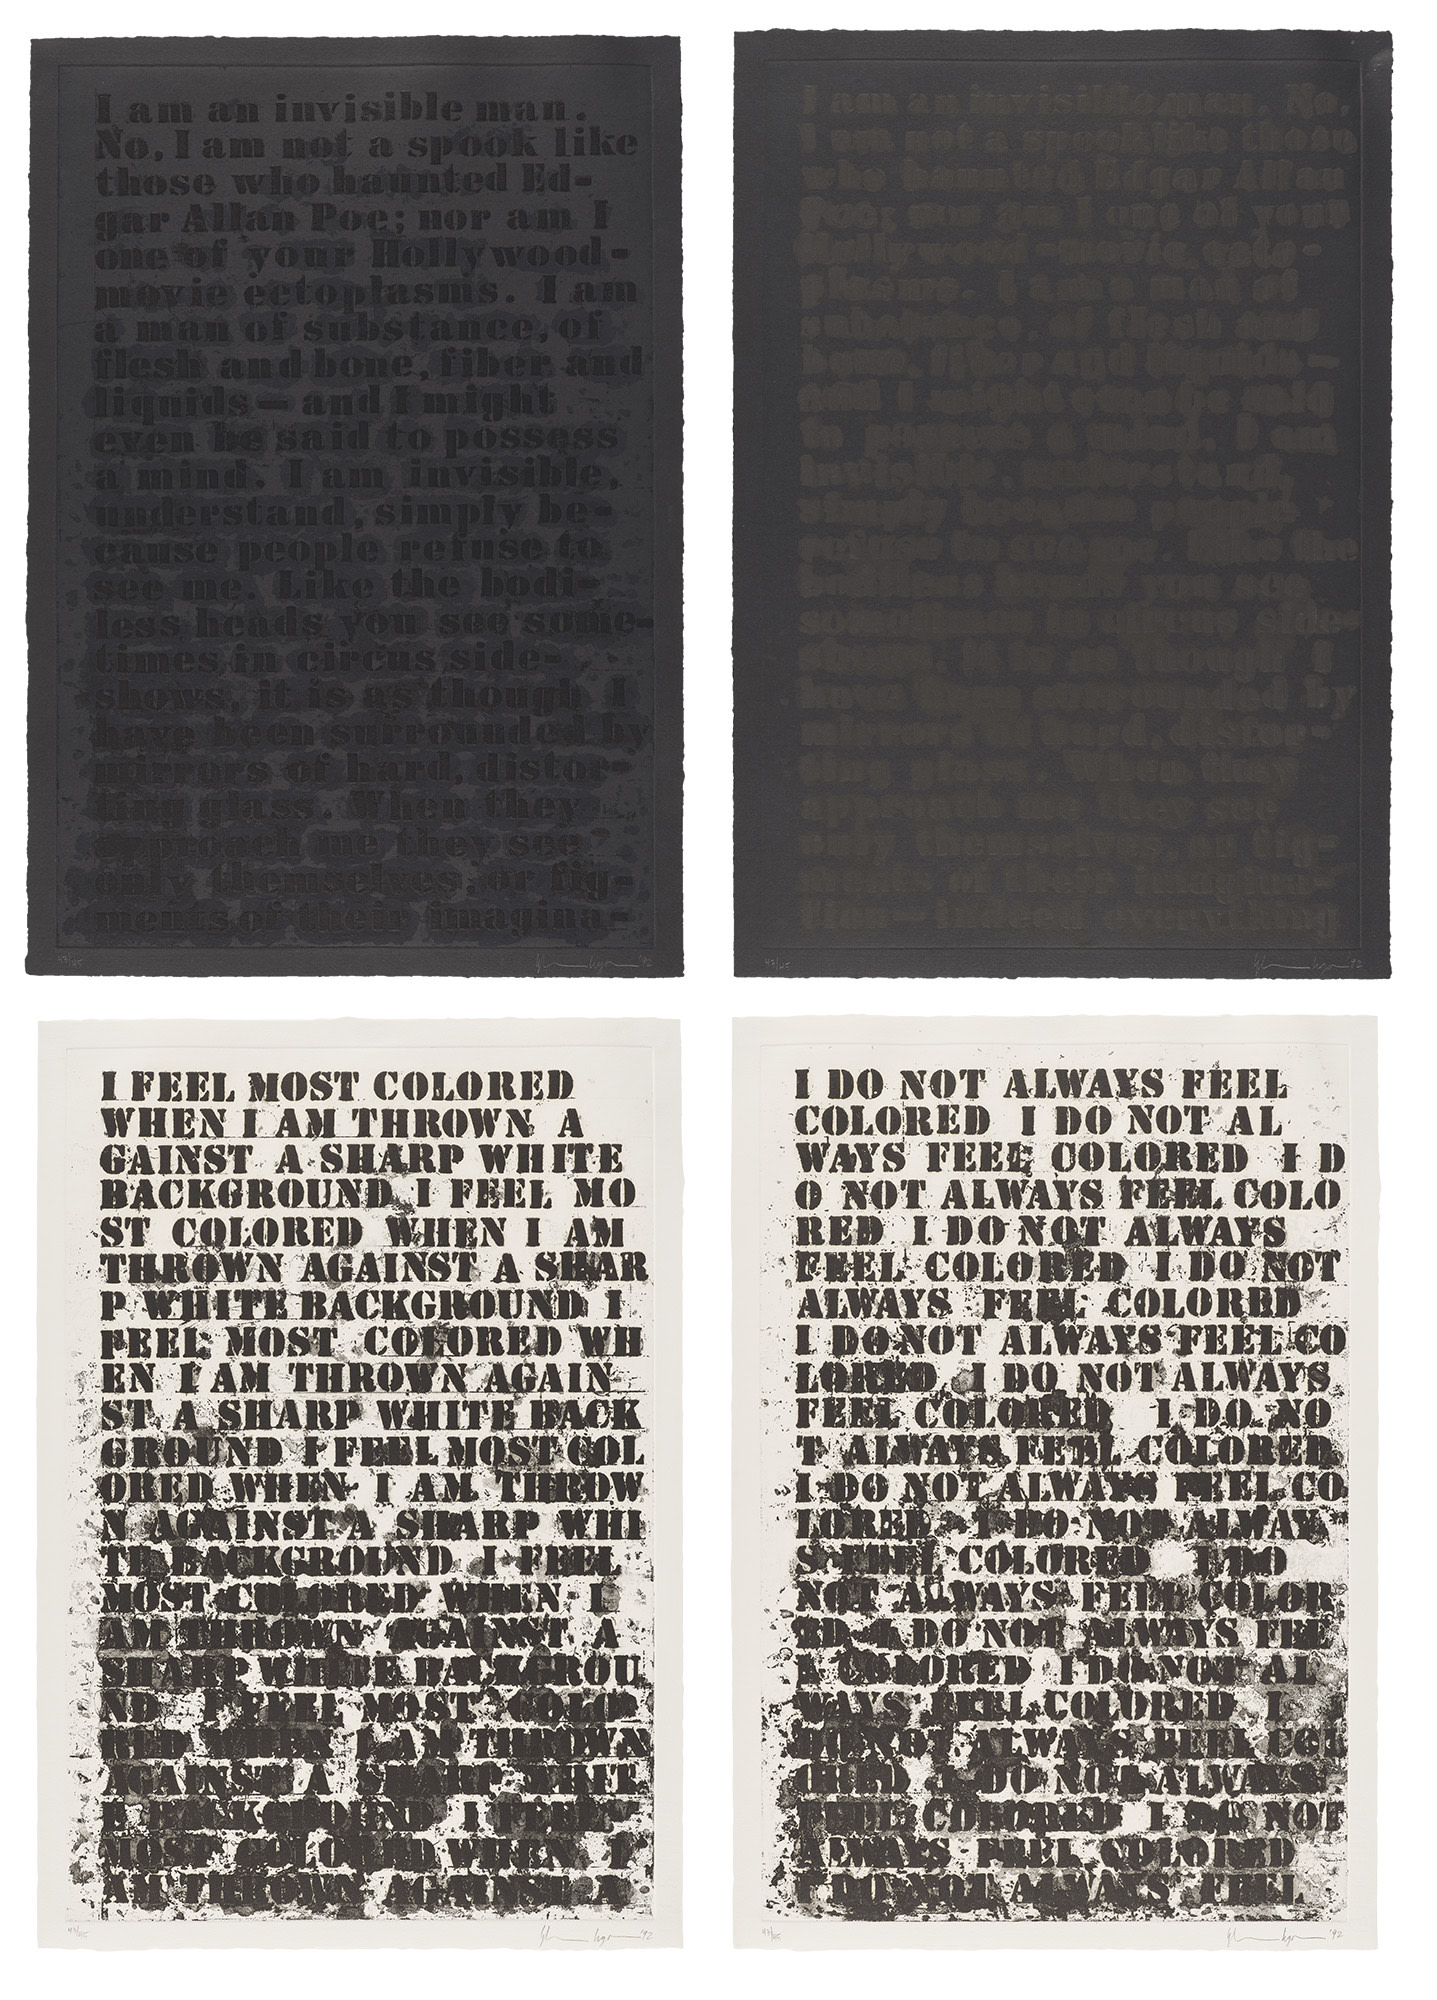 I am an invisible man.
No, I am not a spook like
those who haunted Ed-
gar Allan Poe; nor am I
one of your Hollywood-
movie ectoplasms. I am
a man of substance, of
flesh and bone, fiber and
liquids — and I might
even be said to possess
a mind. I am invisible,
understand, simply be-
cause people refuse to
see me. Like the bodi-
less heads you see some-
times in circus side-
shows, it is as though I
have been surrounded by
mirrors of hard, distor-
ting glass. When they
approach me they see
only themselves, or fig-
ments of their imagina-
47/45
I am an invisible man. No,
I am not a spook like those
who haunted Edgar Allan
Poe; nor am I one of your
Hollywood-movie ecto-
plasms. I am a man of
substance, of flesh and
bone, fiber and liquids—
and I might even be said
to possess a mind. I am
invisible, understand,
simply because people
refuse to see me. Like the
bodiless heads you see
sometimes in circus side-
shows, it is as though I
have been surrounded by
mirrors of hard, distor-
ting glass. When they
approach me they see
only themselves, or fig-
ments of their imagina-
tion— indeed everything
I FEEL MOST COLORED
WHEN I AM THROWN A
GAINST A SHARP WHITE
BACKGROUND I FEEL MO
ST COLORED WHEN I AM
THROWN AGAINST A SHAR
P WHITE BACKGROUND I
FEEL MOST COLORED WH
EN I AM THROWN AGAIN
ST A SHARP WHITE BACK
GROUND I FEEL MOST COL
ORED WHEN I AM THROW
N AGAINST A SHARP WHI
TE BACKGROUND I FEEL
MOST COLORED WHEN I
AM THROWN AGAINST A
SHARP WHITE BACKGROU
ND I FEEL MOST COLO
RED WHEN I AM THROWN
AGAINST A SHARP WHIT
E BACKGROUND I FEEL
MOST COLORED WHEN I
AM THROWN AGAINST A
'92
I DO NOT ALWAYS FEEL
COLORED I DO NOT AL
WAYS FEEL COLORED I D
O NOT ALWAYS FEEL COLO
RED I DO NOT ALWAYS
FEEL COLORED I DO NOT
ALWAYS FEEL COLORED
I DO NOT ALWAYS FEEL CO
LORED I DO NOT ALWAYS
FEEL COLORED I DO NO
T ALWAYS FEEL COLORED
I DO NOT ALWAYS FEEL CO
LORED I DO NOT ALWAY
S FEEL COLORED I DO
NOT ALWAYS FEEL COLOR
ED I DO NOT ALWAYS FEE
L COLORED I DO NOT AL
WAYS FEEL COLORED I
DO NOT ALWAYS FEEL COL
ORED I DO NOT ALWAYS
FEEL COLORED I DO NOT
ALWAYS FEEL COLORED
I DO NOT ALWAYS FEEL
'92